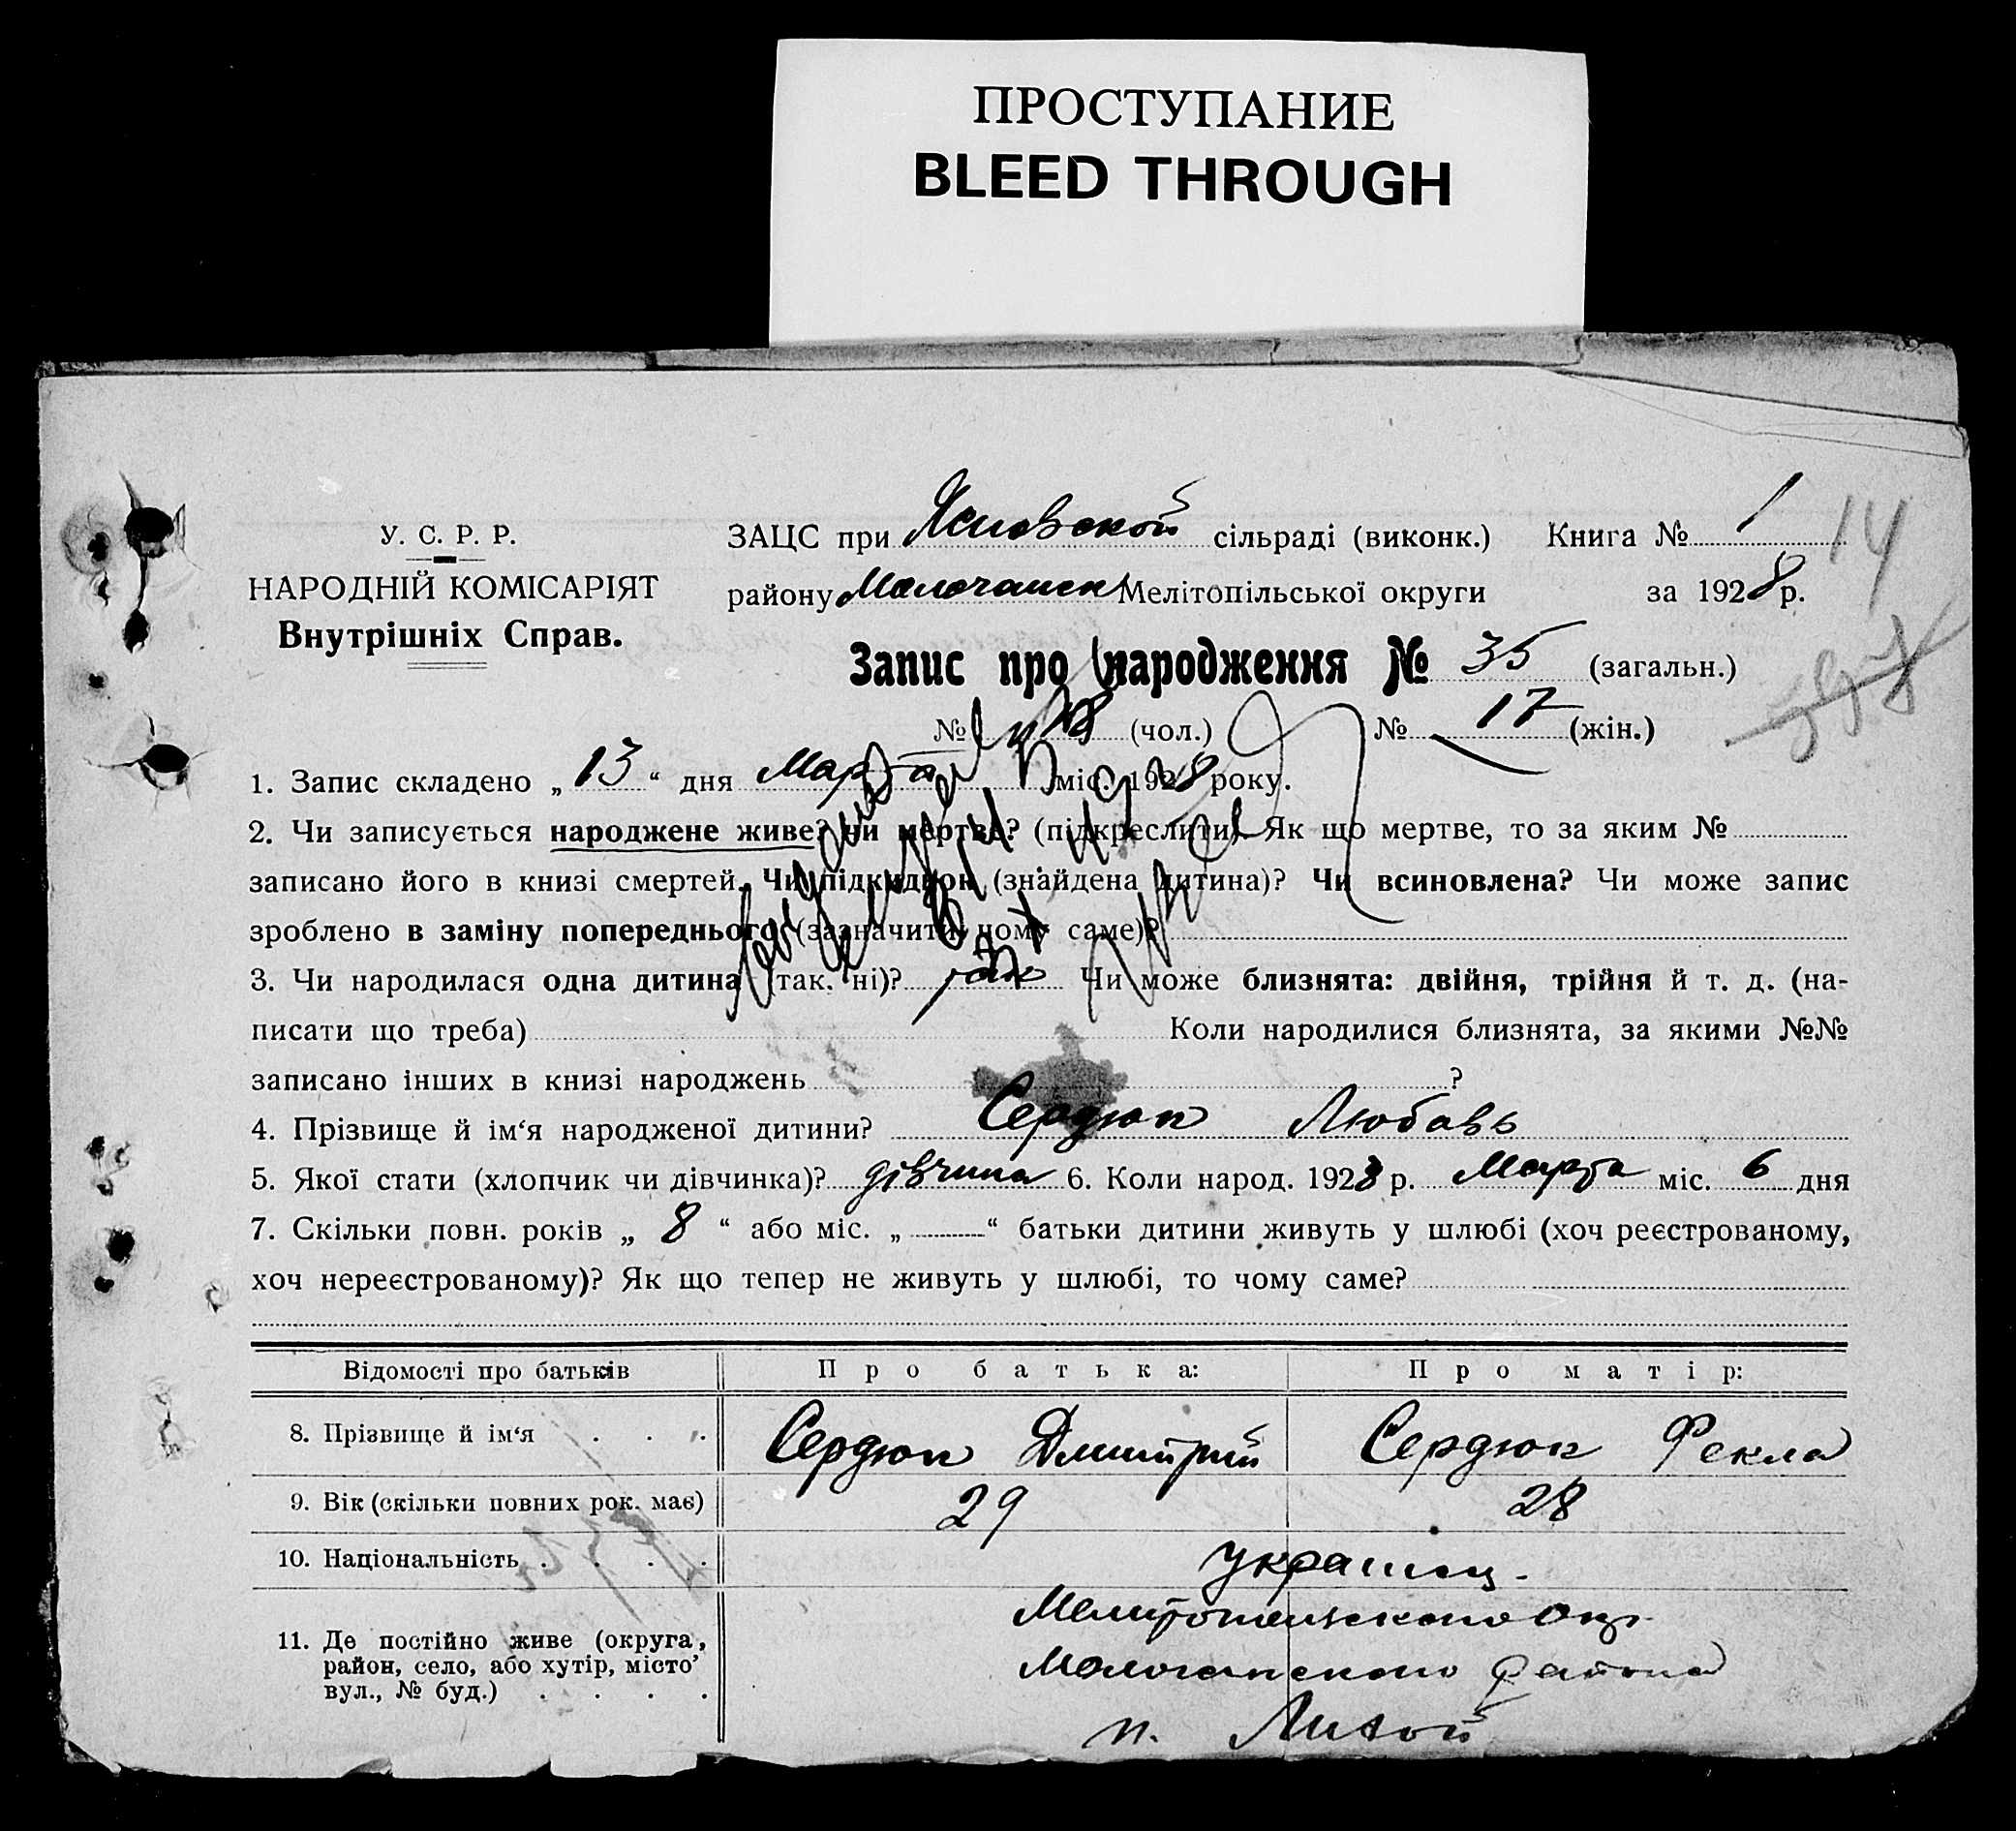 ПРОСТУПАНИЕ
BLEED THROUGH
У. С. Р. Р.
НАРОДНІЙ КОМІСАРІЯТ
Внутрішніх Справ.
ЗАЦС при сільраді (виконк.) Книга № 1
14
району Молочанск Мелітопільської округи за 1928 р.
Запис про народження № 35 (загальн.)
№ 18 (чол.) № 17 (жін.)
1. Запис складено „ 13 “ дня Марта міс. 1928 року.
2. Чи записується народжене живе? чи мертве? (підкреслити). Як що мертве, то за яким №
записано його в книзі смертей. Чи підкидьок (знайдена дитина)? Чи всиновлена? Чи може запис
зроблено в заміну попереднього (зазначити чому саме)?
3. Чи народилася одна дитина (так. ні)? так Чи може близнята: двійня, трійня й т. д. (на-
писати що треба) Коли народилися близнята, за якими №№
записано інших в книзі народжень ?
4. Прізвище й ім‘я народженої дитини? Сердюк Любовь
5. Якої стати (хлопчик чи дівчинка)? дівчина 6. Коли народ. 1928 р. Марта міс. 6 дня
7. Скільки повн. років „ 8 “ або міс. „ “ батьки дитини живуть у шлюбі (хоч реєстрованому,
хоч нереєстрованому)? Як що тепер не живуть у шлюбі, то чому саме?
Відомості про батьків Про батька: Про матір:
8. Прізвище й ім‘я . . . Сердюк Дмитрий Сердюк Фекла
9. Вік (скільки повних рок. має) 29 28
10. Національність . . . . украинц.
11. Де постійно живе (округа,
район, село, або хутір, місто,
вул., № буд.) . . . .
Мелитопольского окр.
Молочанского района
п.